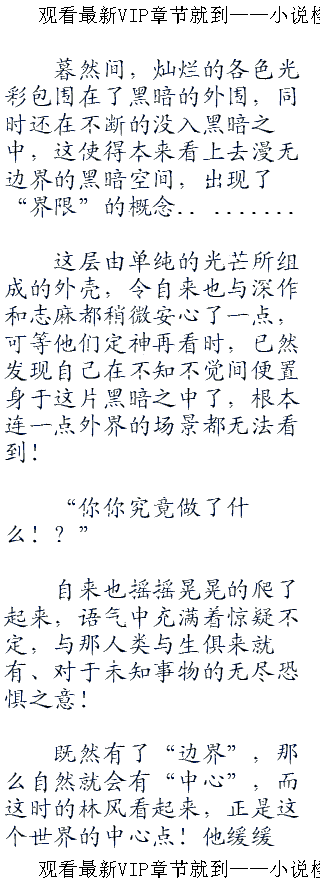 观看最新VIP章节就到——小说检
暮然间，灿烂的各色光
彩包围在了黑暗的外围，同
时还在不断的没入黑暗之
中，这使得本来看上去漫无
边界的黑暗空间，出现了
“界限”的概念．．．．．．．．．
这层由单纯的光芒所组
成的外壳，令自来也与深作
和志麻都稍微安心了一点，
可等他们定神再看时，已然
发现自己在不知不觉间便置
身于这片黑暗之中了，根本
连一点外界的场景都无法看
到！
“你你究竟做了什
么！？”
自来也摇摇晃晃的爬了
起来，语气中充满着惊疑不
定，与那人类与生俱来就
有、对于未知事物的无尽恐
惧之意！
既然有了“边界”，那
么自然就会有“中心”，而
这时的林风看起来，正是这
个世界的中心点！他缓缓
观看最新VIP章节就到——小说检